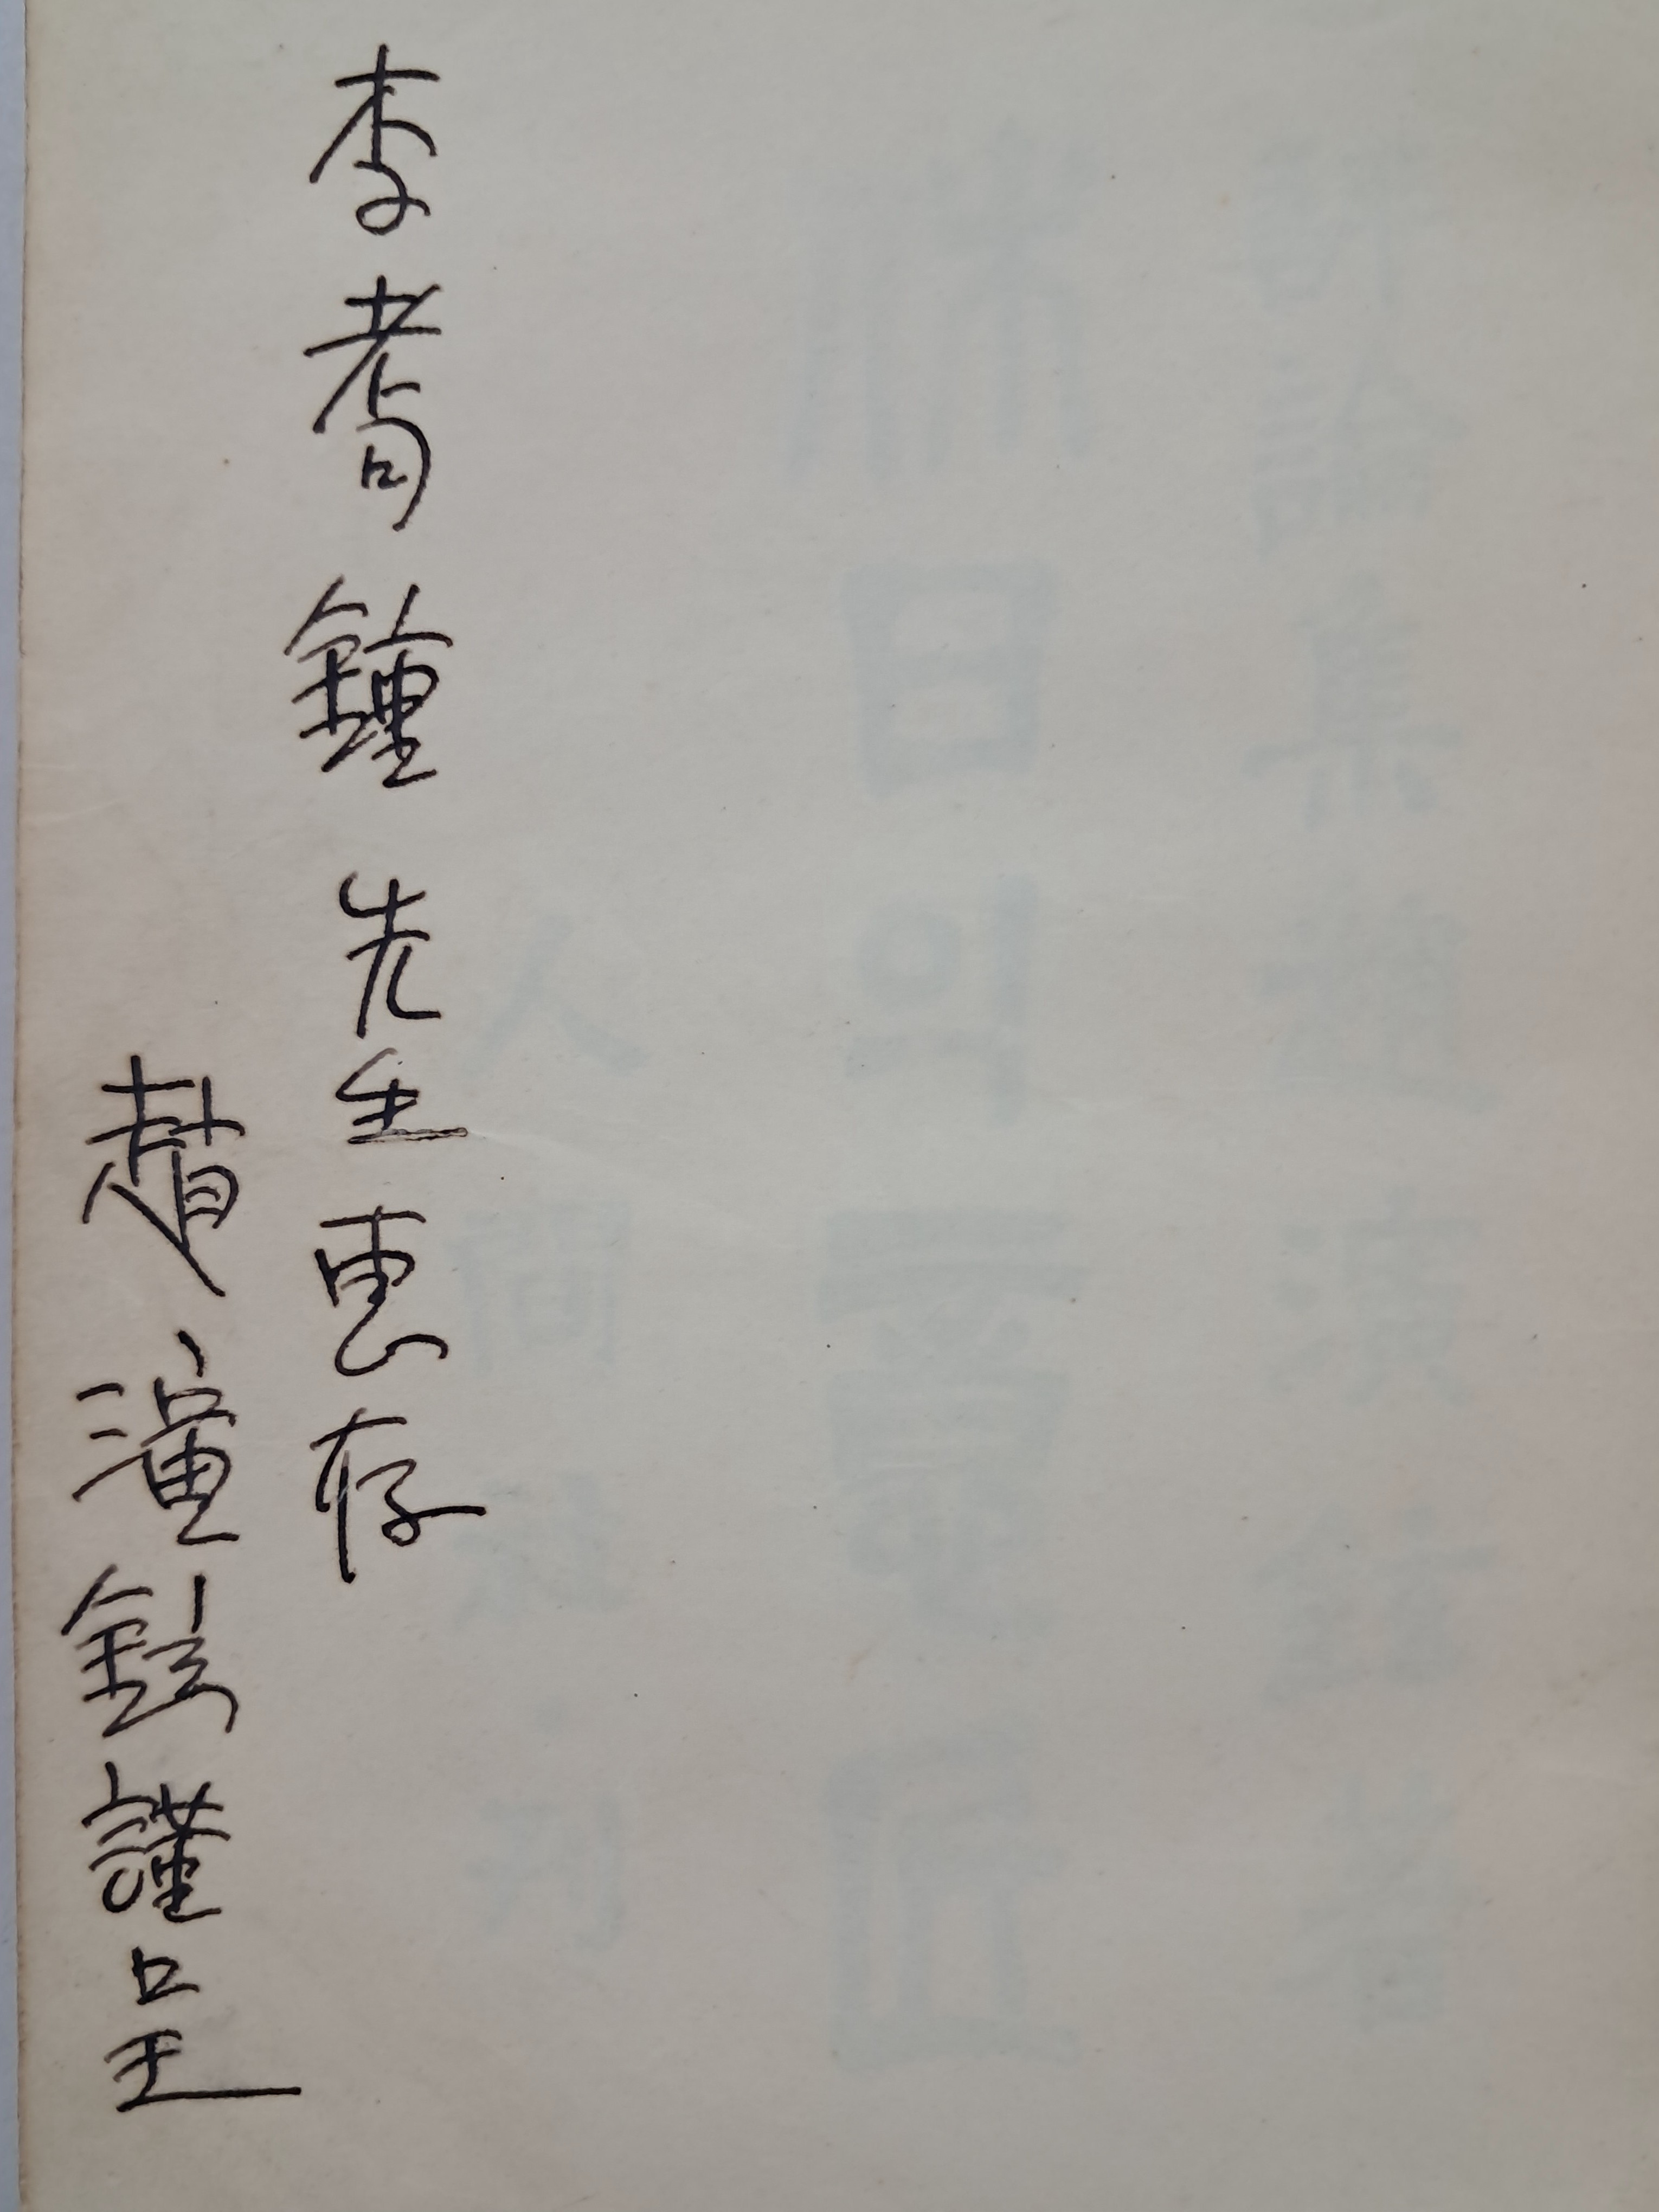 李耈鍾先生惠存
趙演鉉謹呈